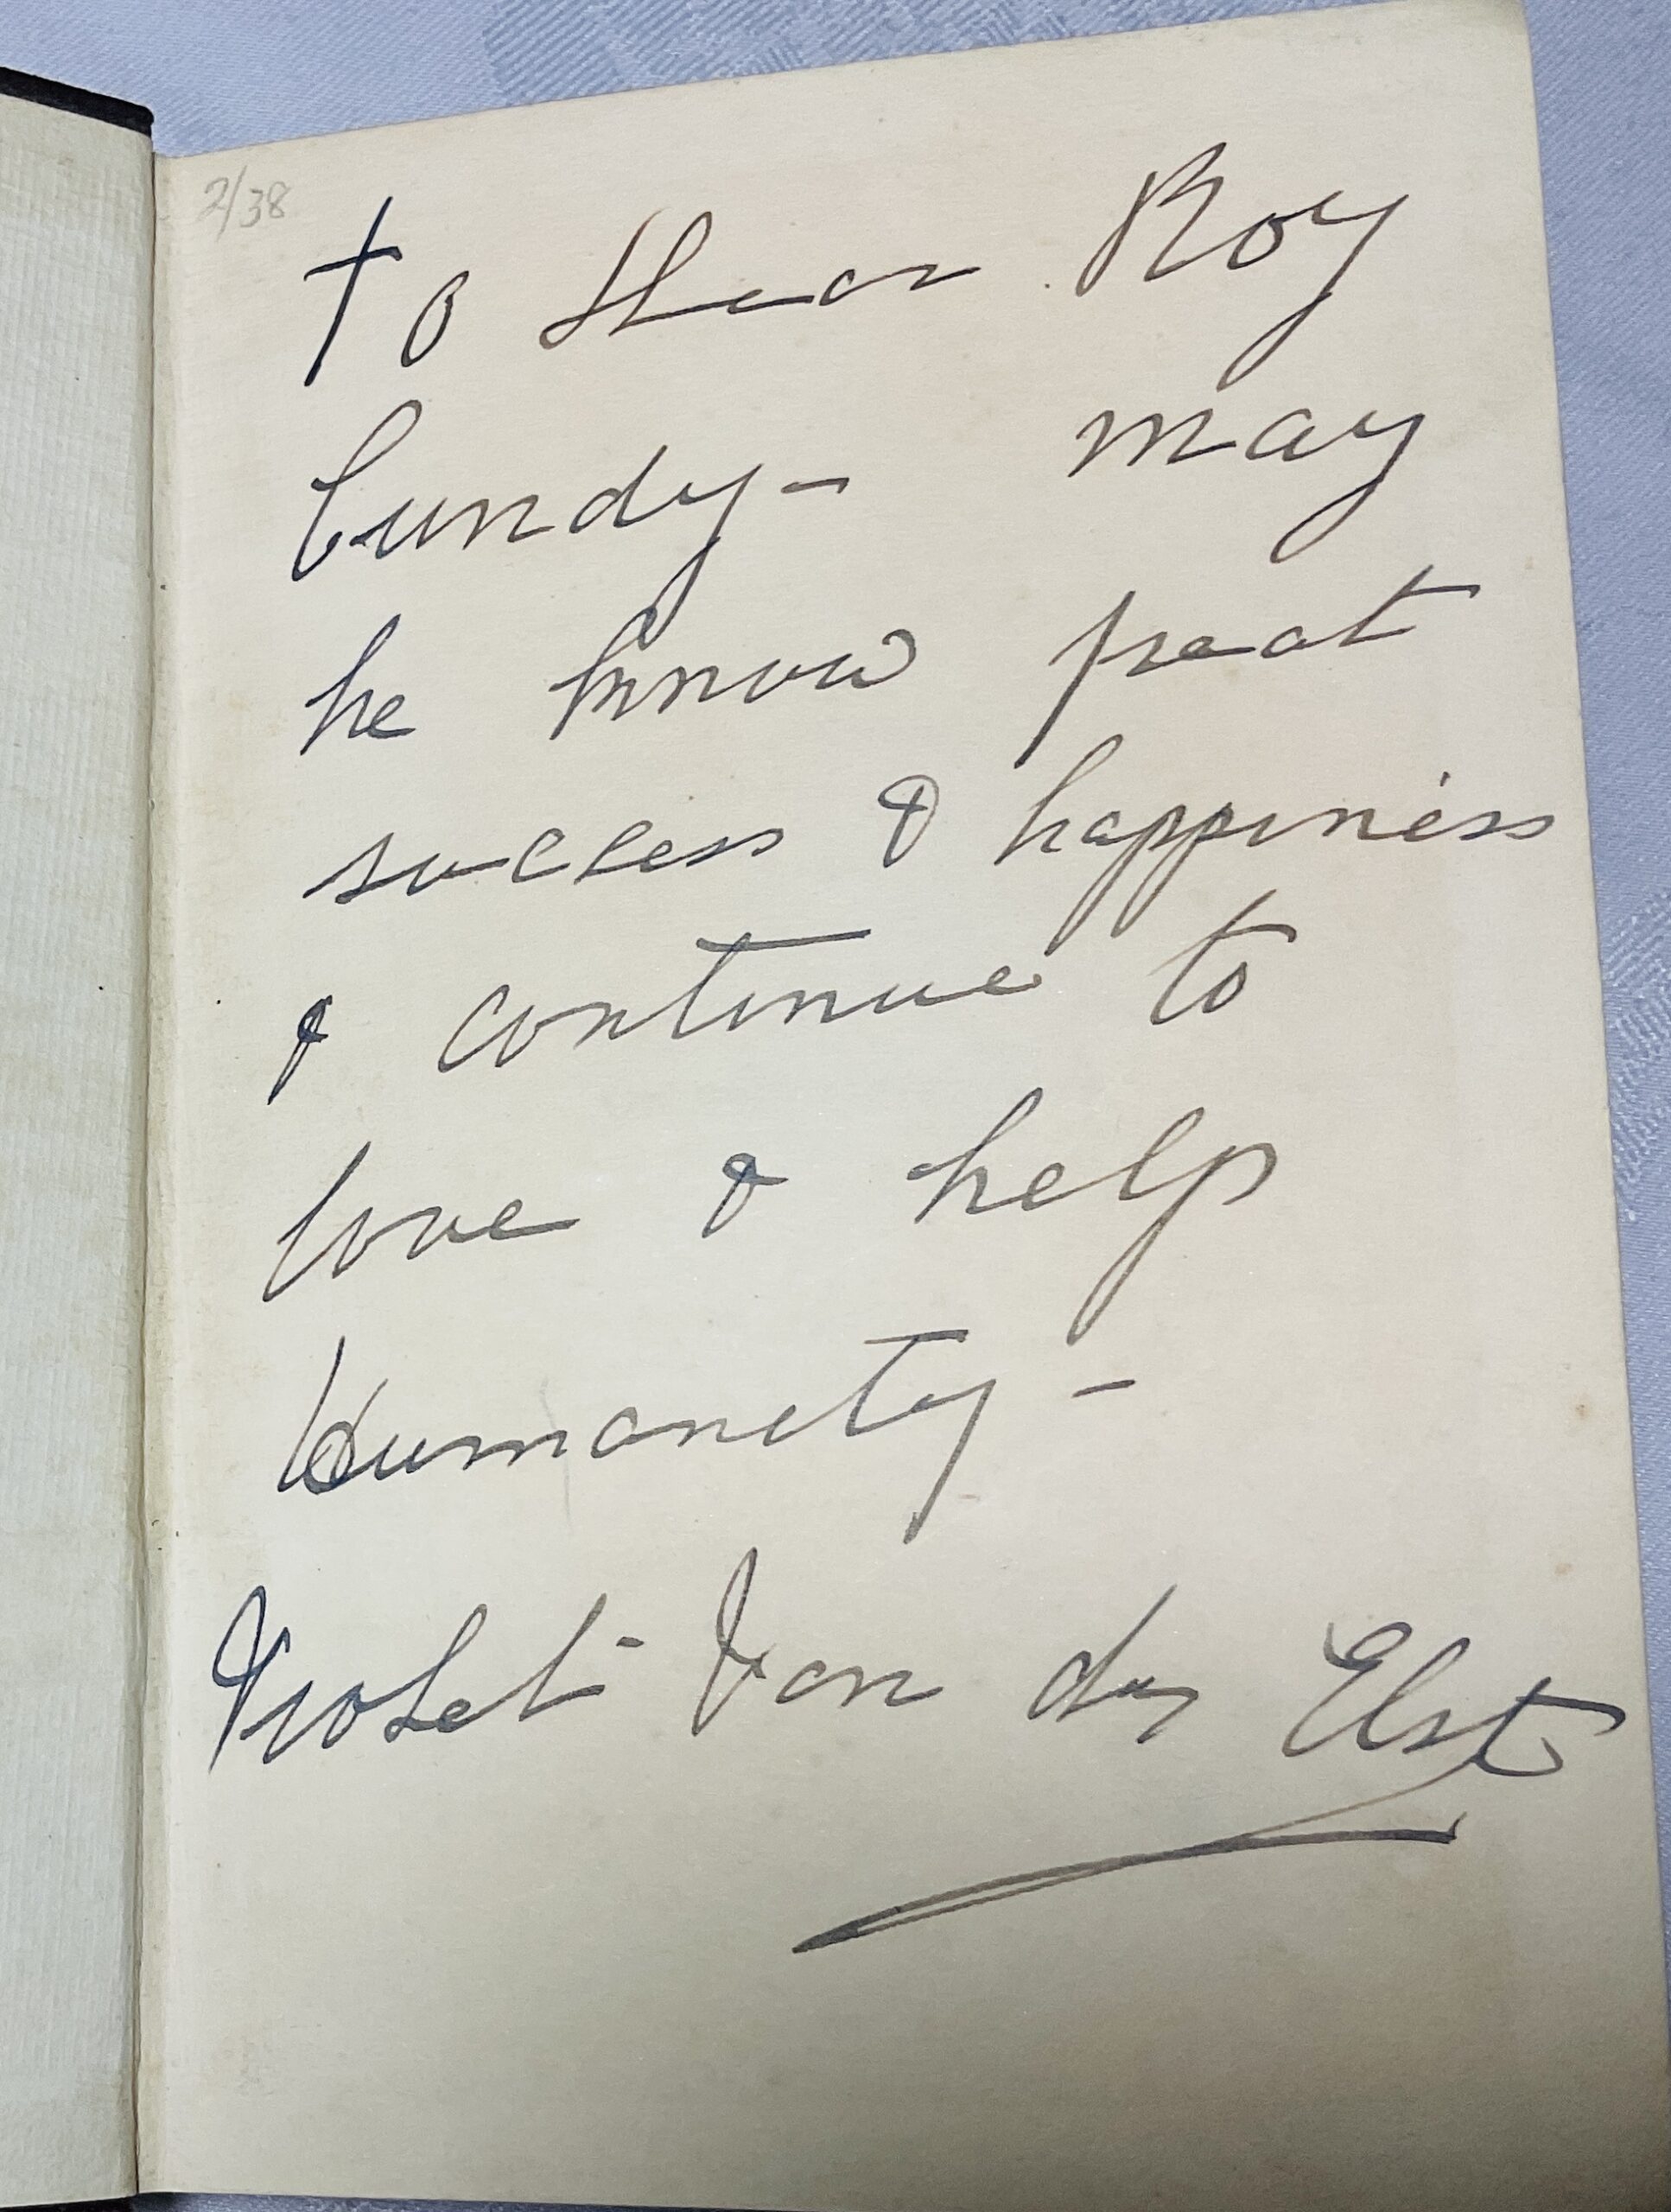 2/38
To Dear Roy
Cundy- may
he know great
success & happiness
& continue to
love & help
Humanity -
Violet Van der Elst